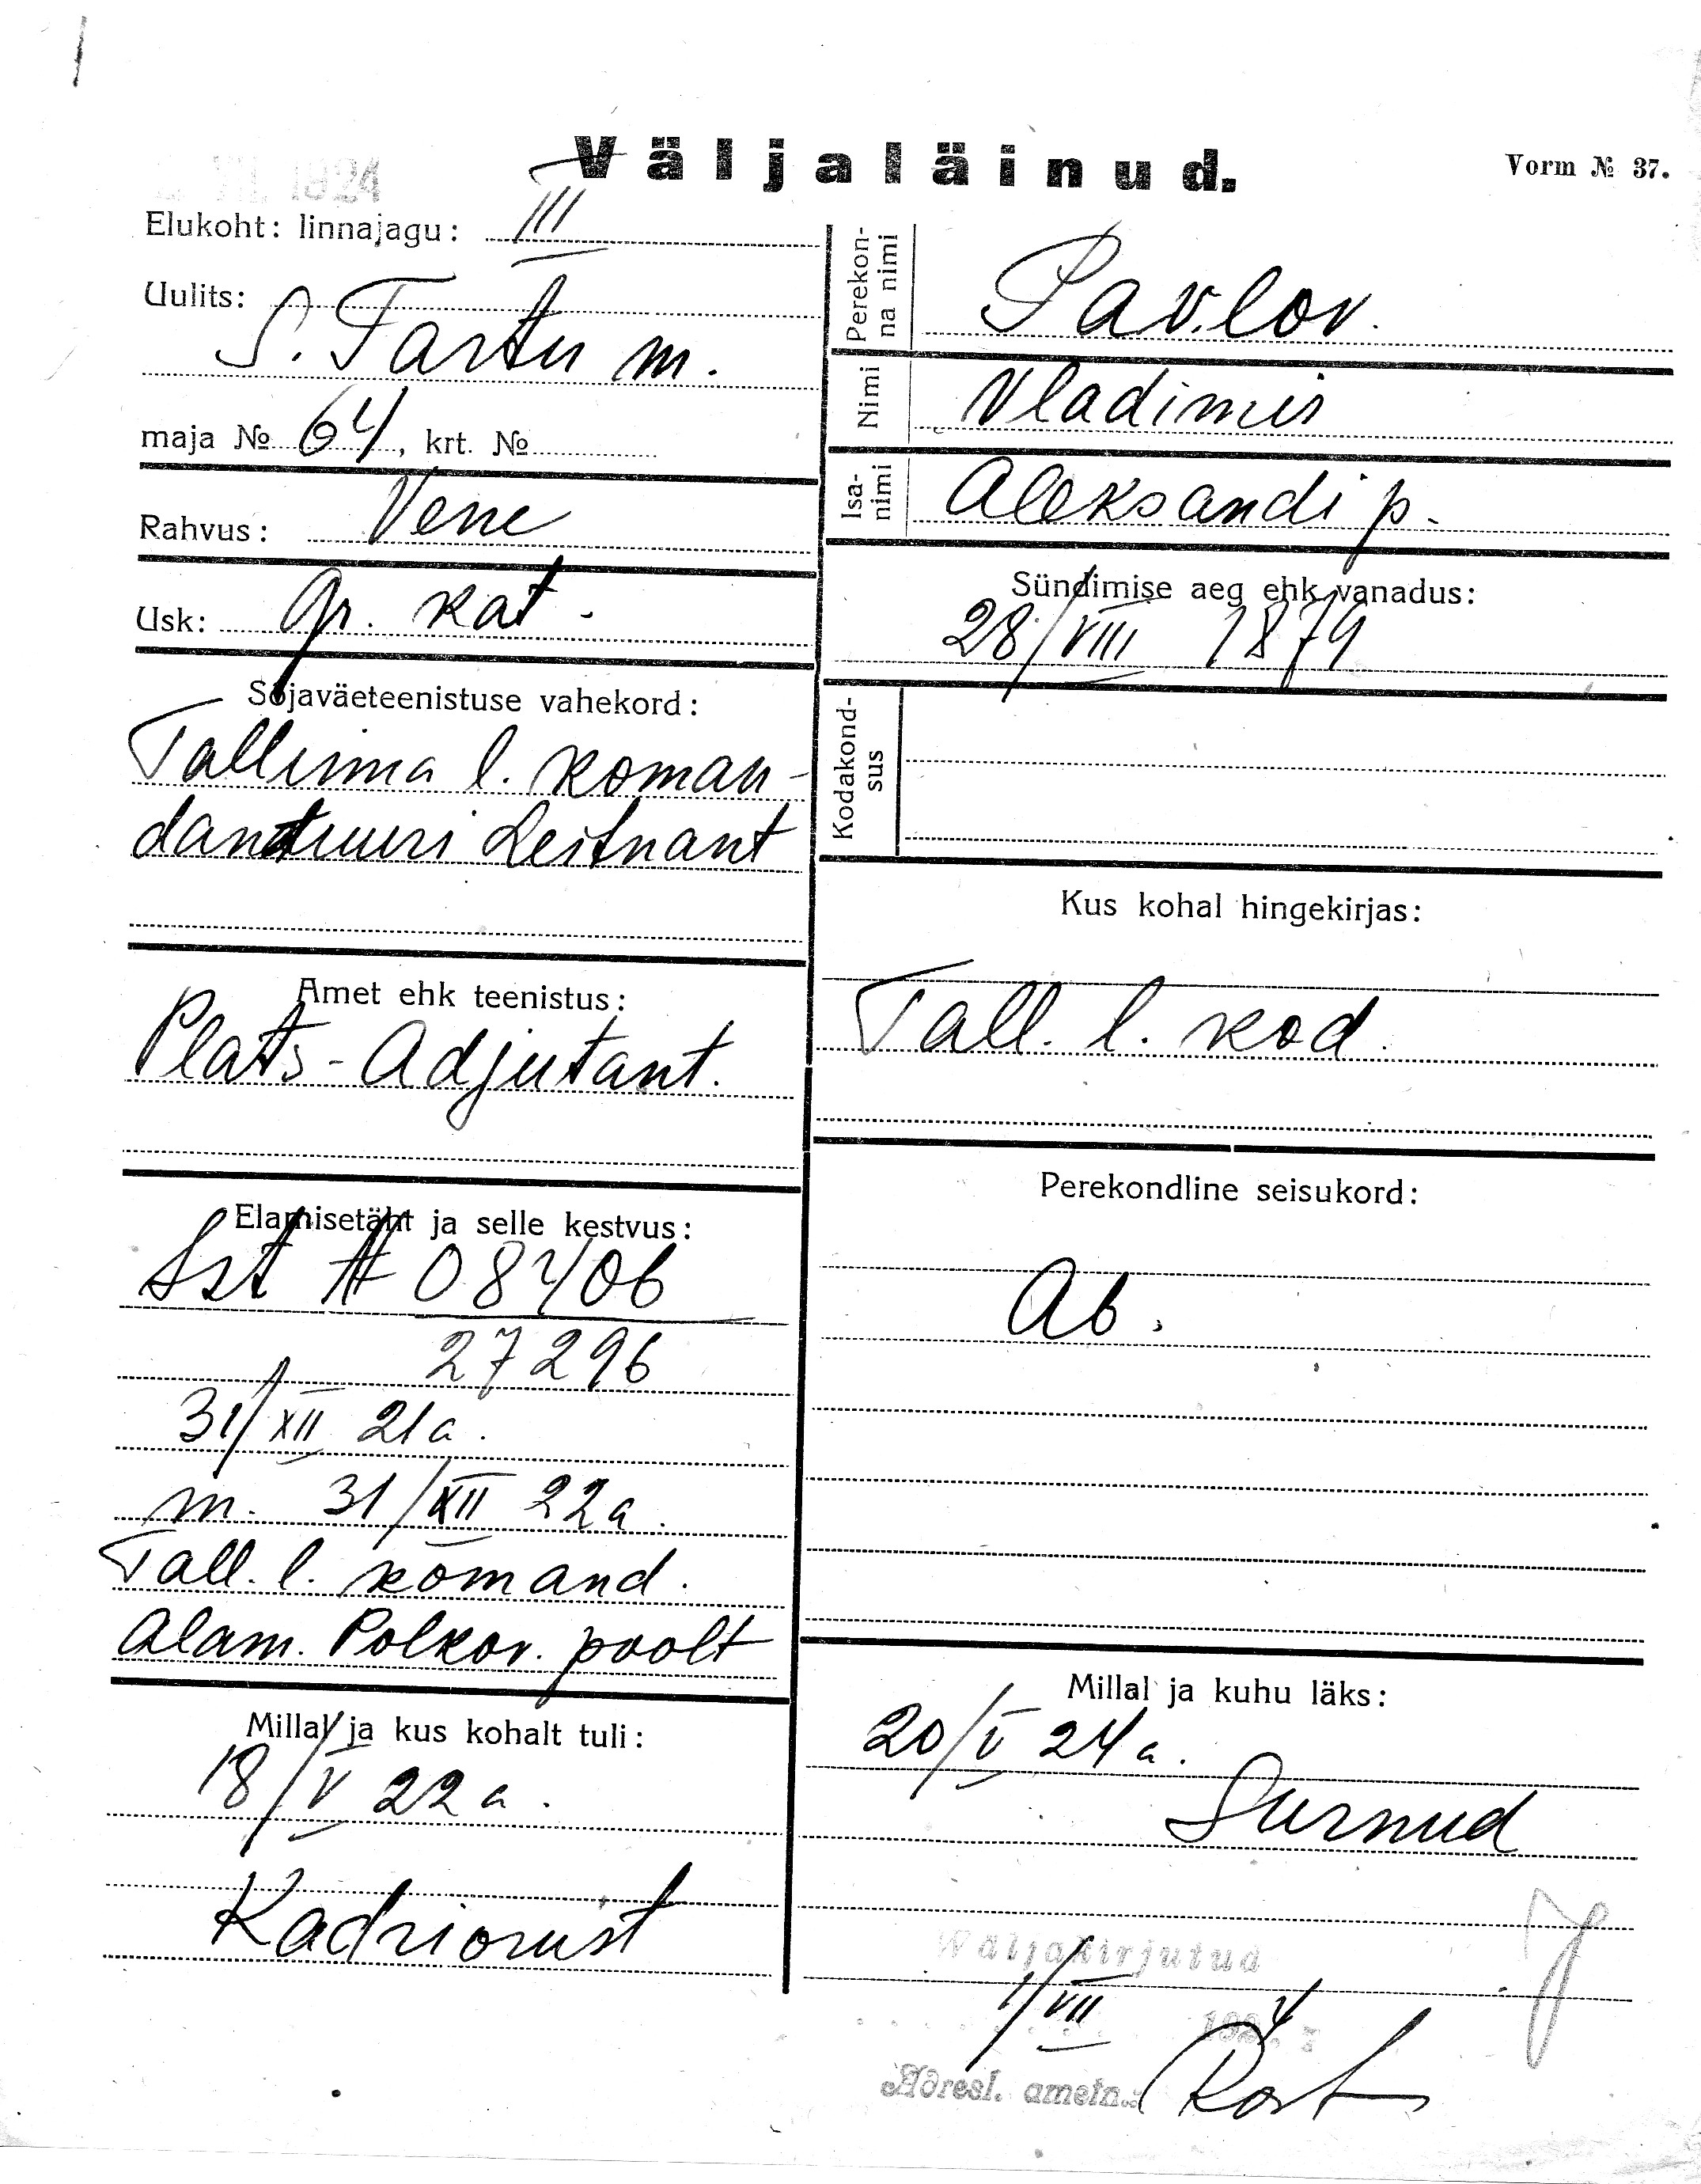 Väljaläinud.
Vorm № 37.
1924
Elukoht: linnajagu: III
Uulits:
S. Tartu m.
maja № 64, krt. №
Rahvus: Vene
Usk: Gr. kat.
Sõjaväeteenistuse vahekord:
Tallinna l. koman-
dantuuri Leitnant
Amet ehk teenistus:
Plats-Adjutant.
Elamisetäht ja selle kestvus:
№ 08406
27296
31/XII 21 a.
m. 31/XII 22 a.
Tall. l. komand.
Alam. Polkov. poolt
Millal ja kus kohalt tuli:
18/V 22 a.
Kadriorust
Perekon-
na nimi
Pavlov.
Nimi
Vladimir
Isa-
nimi
Aleksandi p.
Sündimise aeg ehk vanadus:
28/VIII 1879
Kodakond-
sus
Kus kohal hingekirjas:
Tall. l. kod.
Perekondline seisukord:
Ab.
Millal ja kuhu läks:
20/V 24 a.
Surnud
Väljakirjutud
1/VII 1924
Adresl. ametn.: